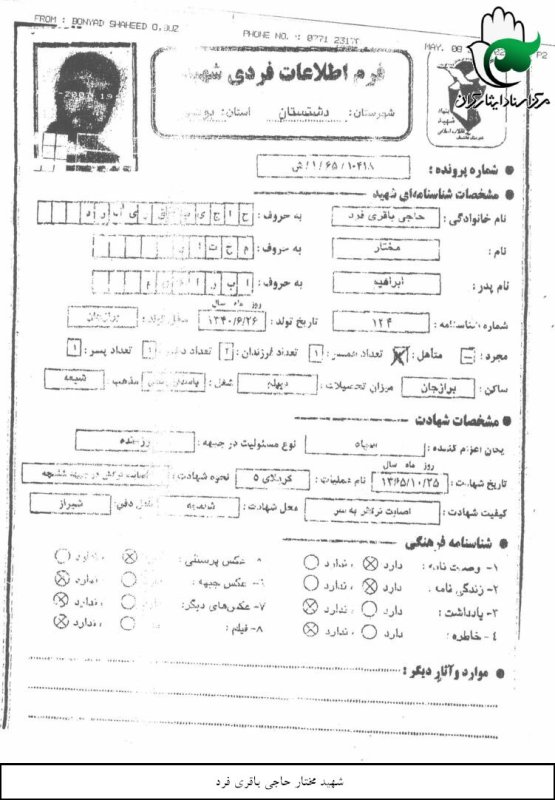 FROM : BONYAD SHAHEED O.BUZ
PHONE NO. : 0771 2317
MAY. 08
P2
مرکز اسناد ایثارگران
فرم اطلاعات فردی شهید
شهرستان: دشتستان استان: بوشهر
شماره پرونده :
مشخصات شناسنامه‌ای شهید
نام خانوادگی : حاجی باقری فرد به حروف :
نام : مختار به حروف :
نام پدر : ابراهیم به حروف :
روز ماه سال
شماره شناسنامه : ۱۲۴ تاریخ تولد : ۱۳۴۰/۶/۲۶ محل تولد : برازجان
مجرد : متأهل : تعداد همسر : ۱ تعداد فرزندان : ۲ تعداد دختر : ۱ تعداد پسر : ۱
ساکن : برازجان میزان تحصیلات : دیپلم شغل : مذهب : شیعه
مشخصات شهادت
یگان اعزام کننده : سپاه نوع مسئولیت در جبهه : رزمنده
روز ماه سال
تاریخ شهادت : ۱۳۶۵/۱۰/۲۵ نام عملیات : کربلای ۵ نحوه شهادت : اصابت ترکش در جبهه شلمچه
کیفیت شهادت : اصابت ترکش به سر محل شهادت : شلمچه محل دفن : شیراز
شناسنامه فرهنگی
۱- وصیت نامه : دارد ندارد عکس پرسنلی : ندارد
۲- زندگی نامه : دارد ندارد عکس جبهه : ندارد
۳- یادداشت : دارد ندارد ۷- عکس‌های دیگر : ندارد
۴- خاطره : دارد ندارد ۸- فیلم : ندارد
موارد و آثار دیگر :
شهید مختار حاجی باقری فرد